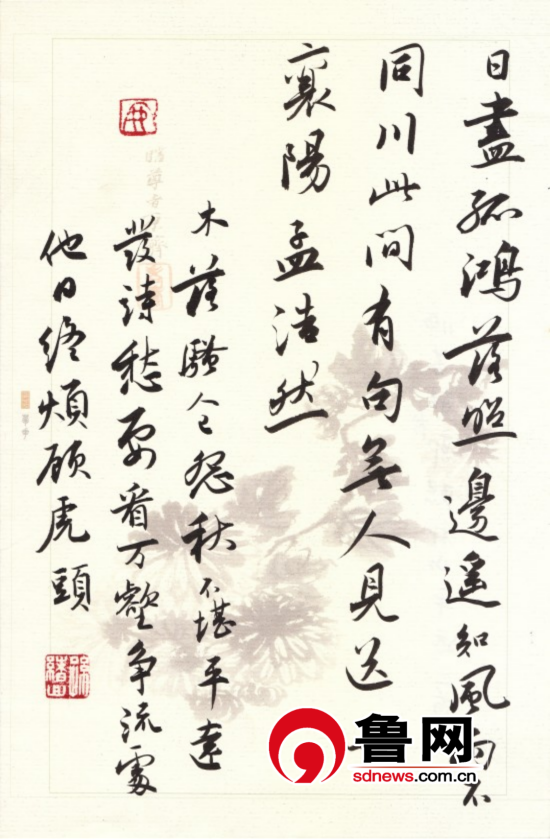 目盡孤鴻落照邊遙知風雨不
同川此間有句無人見送
襄陽孟浩然
木落騷人已怨秋不堪平遠
發詩愁要看万壑争流處
他日終煩顧虎頭
鲁网
sdnews.com.cn